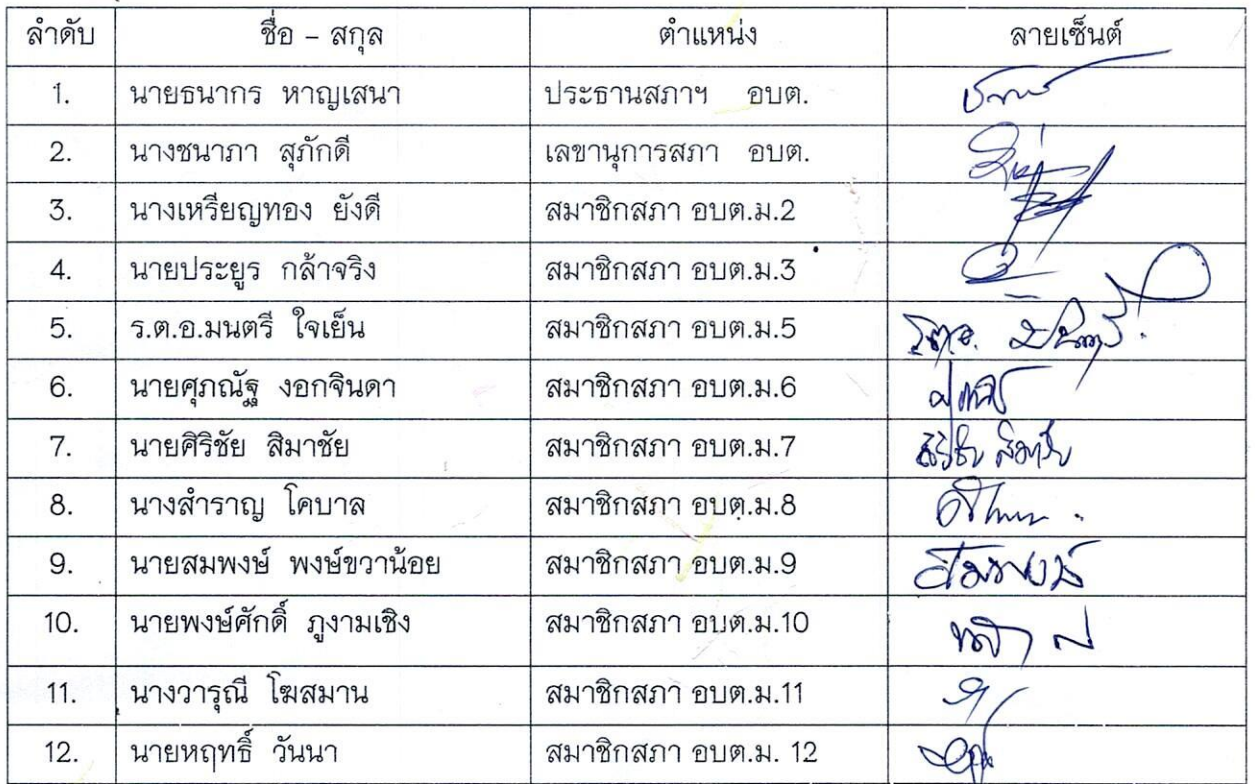 ลำดับ ชื่อ - สกุล ตำแหน่ง ลายเซ็นต์
1. นายธนากร หาญเสนา ประธานสภาฯ อบต.
2. นางชนาภา สุภักดี เลขานุการสภา อบต.
3. นางเหรียญทอง ยังดี สมาชิกสภา อบต.ม.2
4. นายประยูร กล้าจริง สมาชิกสภา อบต.ม.3
5. ร.ต.อ.มนตรี ใจเย็น สมาชิกสภา อบต.ม.5
6. นายศุภณัฐ งอกจินดา สมาชิกสภา อบต.ม.6
7. นายศิริชัย สิมาชัย สมาชิกสภา อบต.ม.7 ศิริชัย สิมาชัย
8. นางสำราญ โคบาล สมาชิกสภา อบต.ม.8
9. นายสมพงษ์ พงษ์ขวาน้อย สมาชิกสภา อบต.ม.9 สมพงษ์
10. นายพงษ์ศักดิ์ ภูงามเชิง สมาชิกสภา อบต.ม.10
11. นางวารุณี โฆสมาน สมาชิกสภา อบต.ม.11
12. นายหฤทธิ์ วันนา สมาชิกสภา อบต.ม. 12